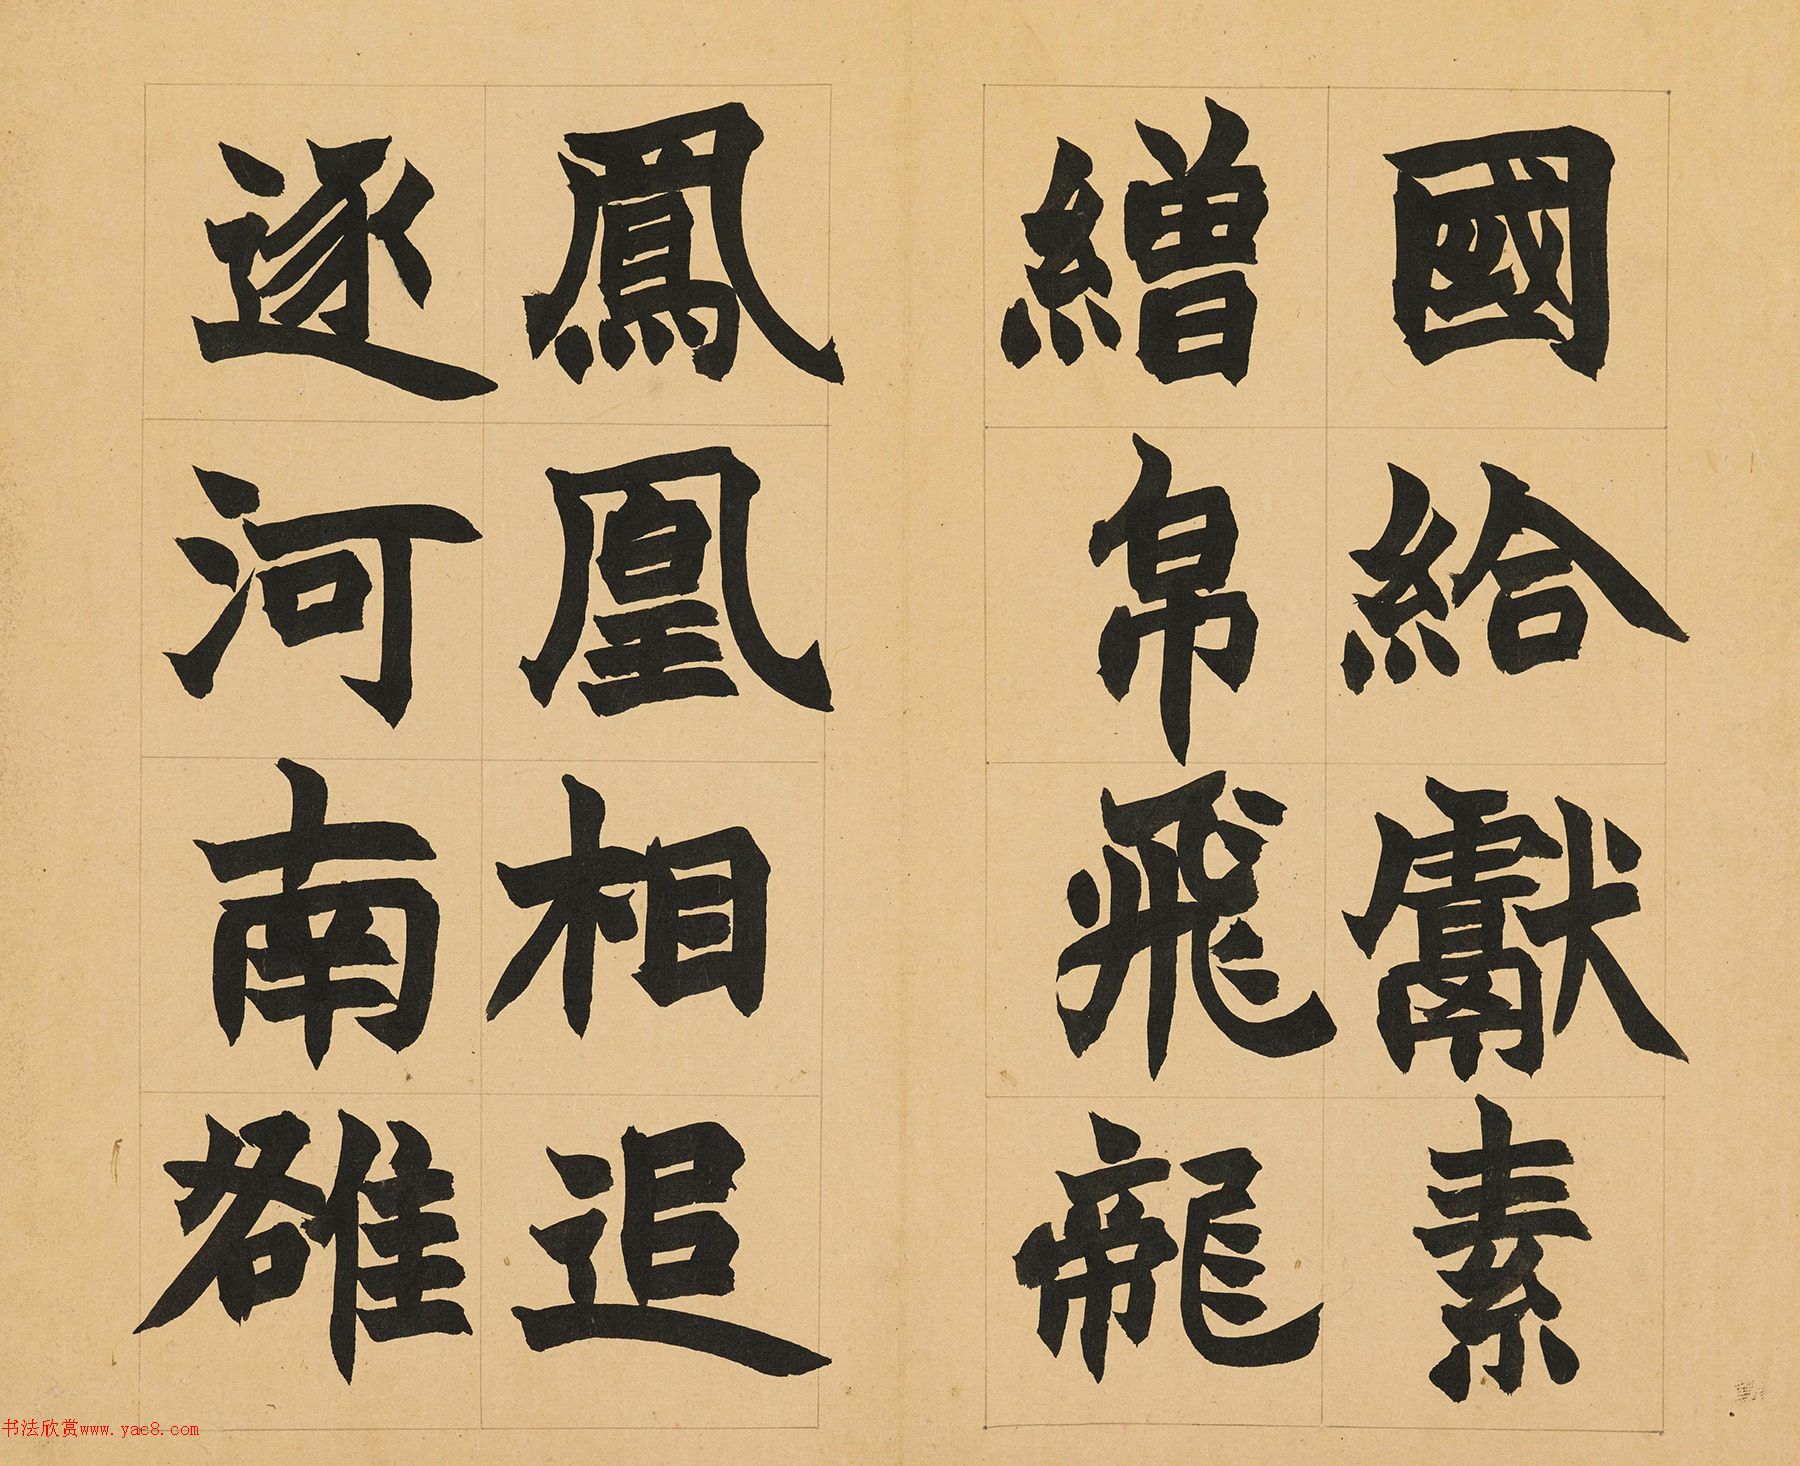 國給獻素
繒帛飛龍
鳳凰相追
逐河南雒
书法欣赏www.yac8.com